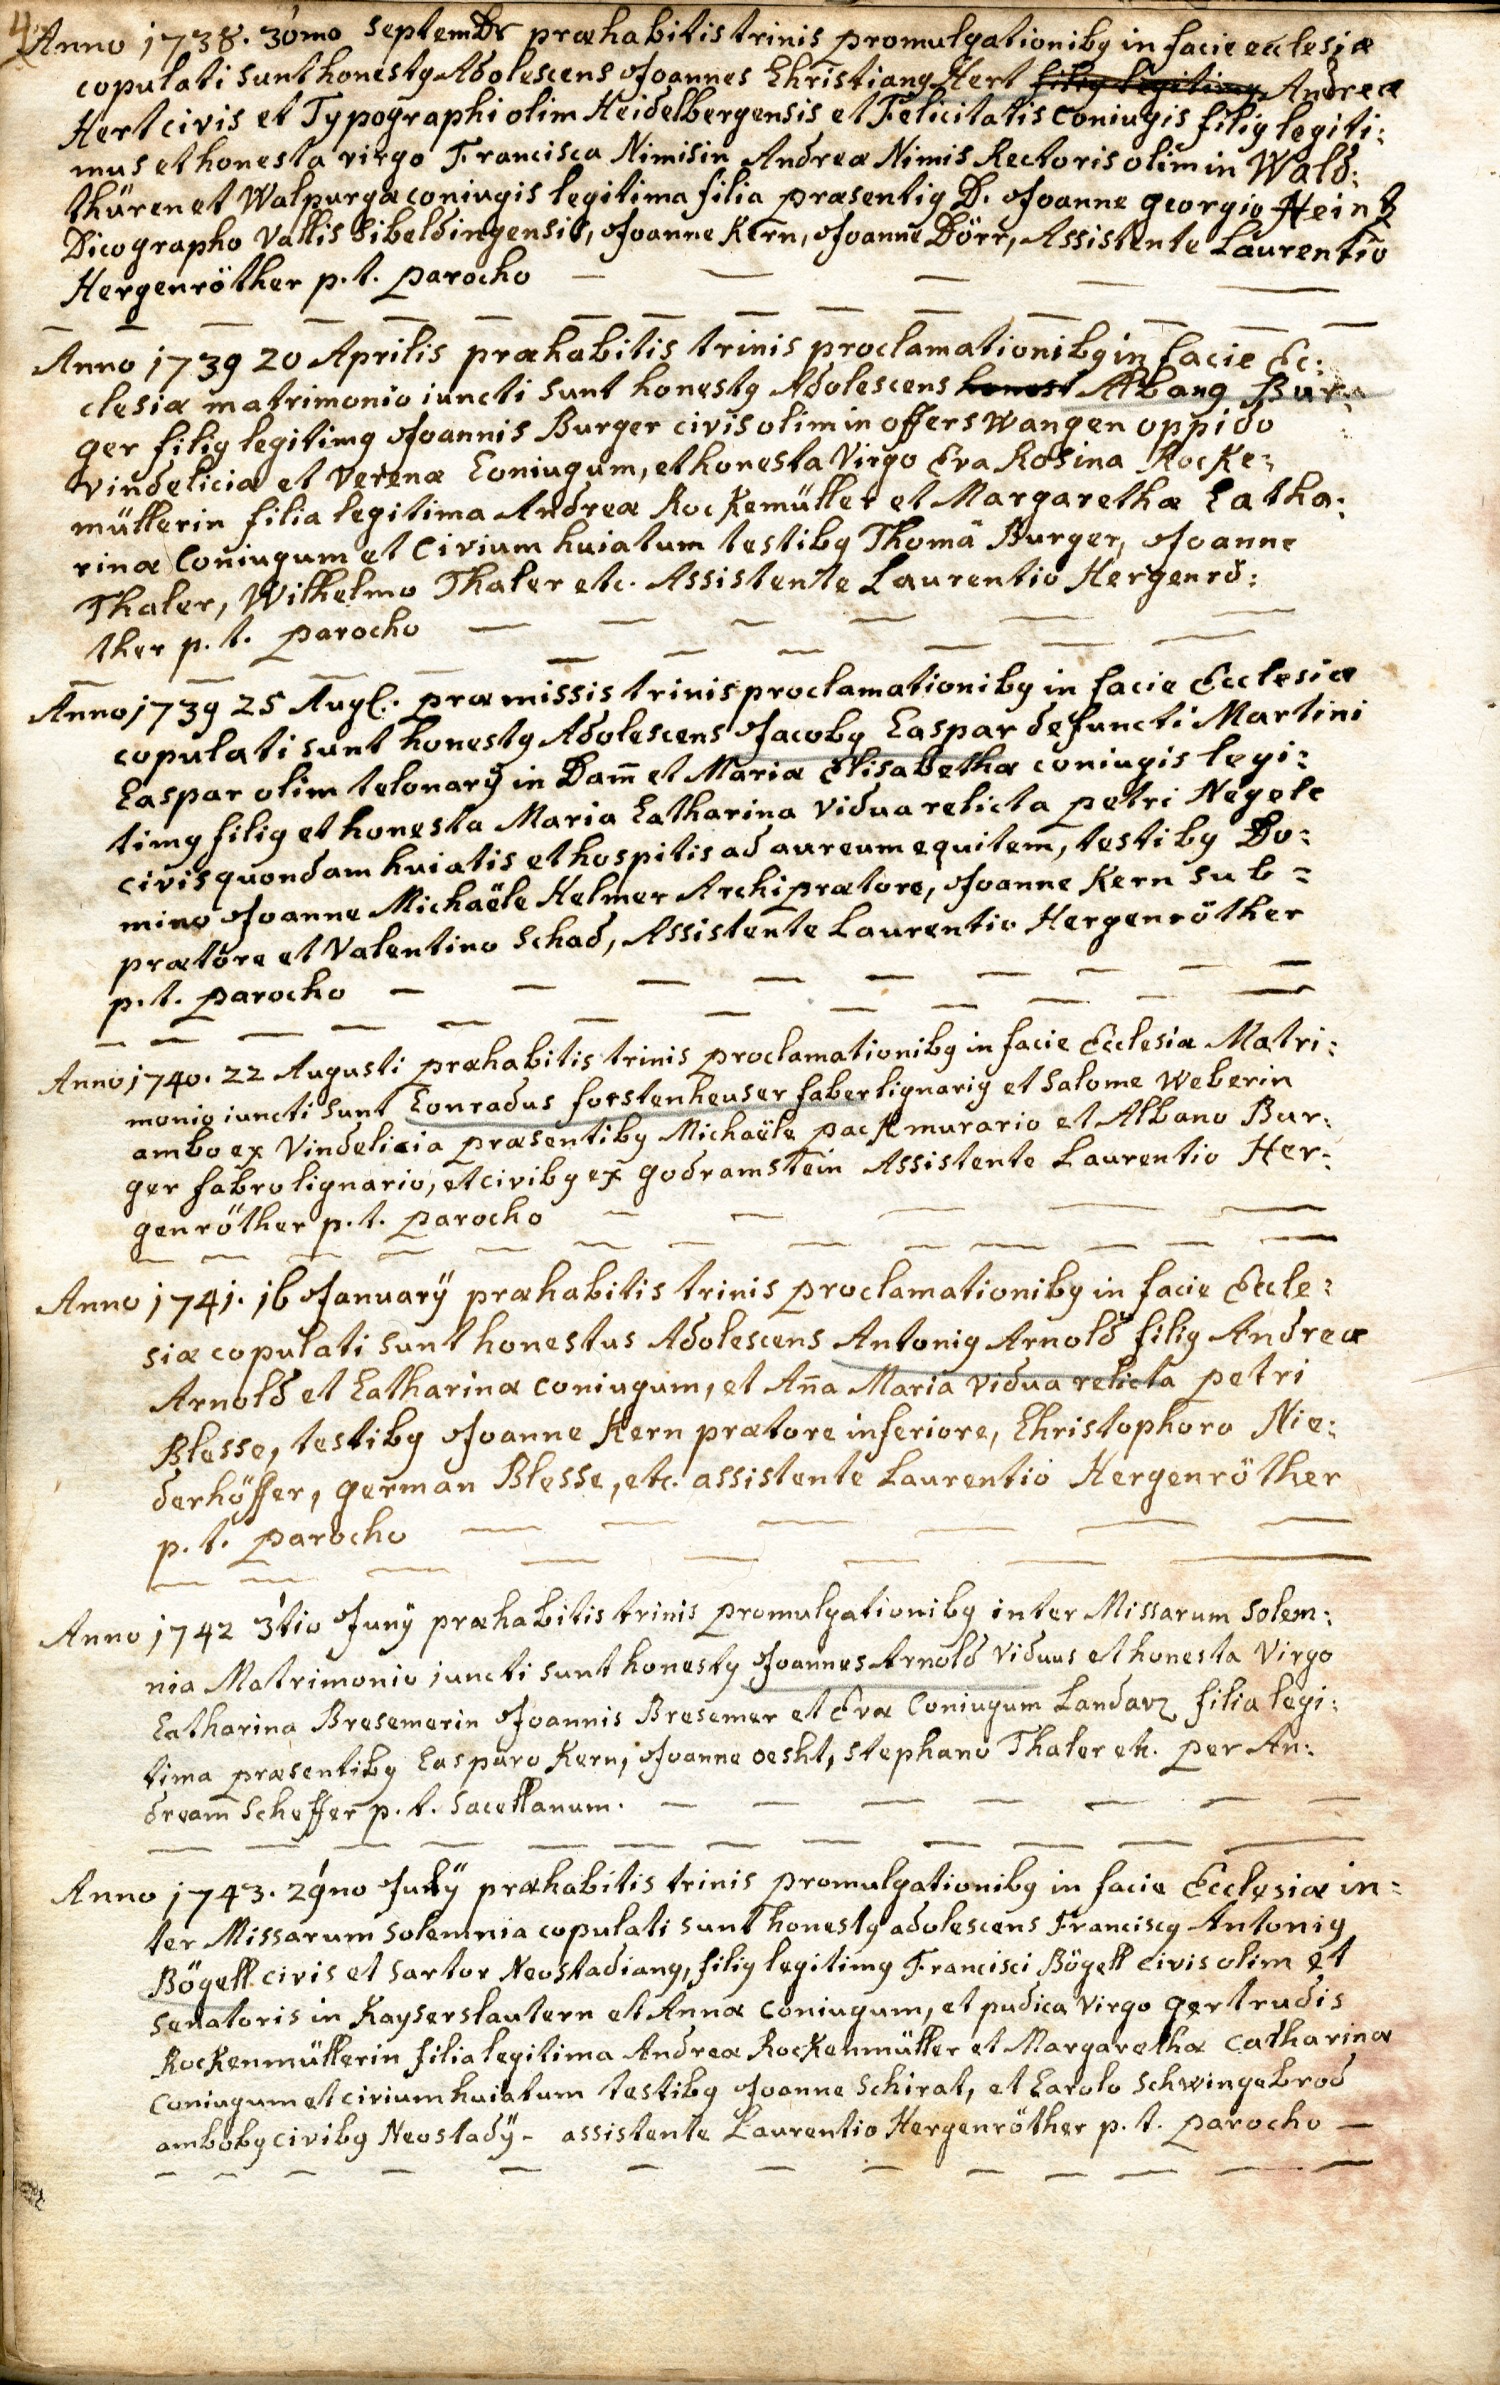 4
Anno 1738. 30mo Septembr præhabitis trinis promulgationibꝰ in facie ecclesiæ
copulati sunt honestꝰ Adolescens Joannes Christianꝰ Hert filiꝰ legitimꝰ Andreæ
Hert civis et Typographi olim Heidelbergensis et Felicitatis Coniugis filiꝰ legiti:
mus et honesta virgo Francisca Nimisin Andreæ Nimis Rectoris olim in Wald:
thüren et Walpurgæ coniugis legitima filia præsentiꝰ D. Joanne Georgio Heintz
Dicographo Vallis Sibeldingensis, Joanne Kern, Joanne Dörr, Assistente Laurentio
Hergenröther p. t. parocho
Anno 1739 20 Aprilis præhabitis trinis proclamationibꝰ in facie Ec:
clesiæ matrimonio iuncti sunt honestꝰ Adolescens honest Albanꝰ Bur:
ger filiꝰ legitimꝰ Joannis Burger civis olim in offerswangen oppido
vindeliciæ et Verenæ Coniugum, et honesta Virgo Eva Rosina Rocke:
müllerin filia legitima Andreæ Rockemüller et Margarethæ Catha:
rinæ Coniugum et Civium huiatum testibꝰ Thomä Burger, Joanne
Thaler, Wilhelmo Thaler etc. Assistente Laurentio Hergenrö:
ther p. t. parocho
Anno 1739 25 Augꝰ. præmissis trinis proclamationibꝰ in facie Ecclesiæ
copulati sunt honestꝰ Adolescens Jacobꝰ Caspar defuncti Martini
Caspar olim telonarÿ in Dam̄ et Mariæ Elisabethæ coniugis legi:
timꝰ filiꝰ et honesta Maria Catharina vidua relicta petri Negele
civis quondam huiatis et hospitis ad aureum equitem, testibꝰ Do:
mino Joanne Michaële Helmer Archiprætore, Joanne Kern sub:
prætore et Valentino Schad, Assistente Laurentio Hergenröther
p. t. parocho
Anno 1740. 22 Augusti præhabitis trinis proclamationibꝰ in facie Ecclesiæ Matri:
monio iuncti sunt Conradus forstenheuser faber lignariꝰ et Salome Weberin
ambo ex Vindelicia præsentibꝰ Michaële pack murario et Albano Bur:
ger fabro lignario, et civibꝰ ex godramstein Assistente Laurentio Her:
genröther p. t. parocho
Anno 1741. 16 Januarÿ præhabitis trinis proclamationibꝰ in facie Eccle:
siæ copulati sunt honestus Adolescens Antoniꝰ Arnold filiꝰ Andreæ
Arnold et Catharinæ coniugum, et An̄a Maria vidua relicta petri
Blesse, testibꝰ Joanne Kern prætore inferiore, Christophoro Nie:
derhöffer, german Blesse, etc. assistente Laurentio Hergenröther
p. t. parocho
Anno 1742 3tio Junÿ præhabitis trinis promulgationibꝰ inter Missarum Solem:
nia Matrimonio iuncti sunt honestꝰ Joannes Arnold viduus et honesta Virgo
Catharina Bresemerin Joannis Bresemer et Evæ Coniugum Landav filia legi:
tima præsentibꝰ Casparo Kern, Joanne oesht, stephano Thaler etc. per An:
dream Scheffer p. t. Sacellanum.
Anno 1743. 29no Julÿ præhabitis trinis promulgationibꝰ in facie Ecclesiæ in:
ter Missarum Solemnia copulati sunt honestꝰ adolescens Franciscꝰ Antoniꝰ
Bögell civis et sartor Neostadianꝰ, filiꝰ legitimꝰ Francisci Bögell civis olim et
senatoris in Kayserslautern et Annæ Coniugum, et pudica virgo gertrudis
Rockenmüllerin filia legitima Andreæ Rockenmüller et Margarethæ Catharinæ
Coniugum et civium huiatum testibꝰ Joanne Schirat, et Carolo Schwingebrod
ambobꝰ civibꝰ Neostadÿ - assistente Laurentio Hergenröther p. t. parocho